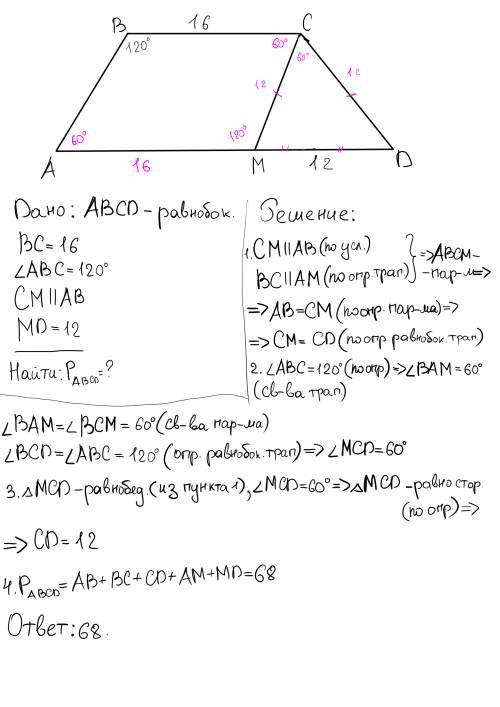 B 16 C
120° 60° 60°
12 12
60° 120°
A 16 M 12 D
Дано: ABCD - равнобок.
BC = 16
∠ABC = 120°
CM || AB
MD = 12
Найти: P_ABCD = ?
Решение:
1. CM || AB (по усл.) } => ABCM -
BC || AM (по опр. трап) - пар-м =>
=> AB = CM (по опр. пар-ма) =>
=> CM = CD (по опр равнобок. трап)
2. ∠ABC = 120° (по опр) => ∠BAM = 60°
(св-ва трап)
∠BAM = ∠BCM = 60° (св-ва пар-ма)
∠BCD = ∠ABC = 120° (опр. равнобок. трап) => ∠MCD = 60°
3. △MCD - равнобед. (из пункта 1), ∠MCD = 60° => △MCD - равностор.
(по опр) =>
=> CD = 12
4. P_ABCD = AB + BC + CD + AM + MD = 68
Ответ: 68.